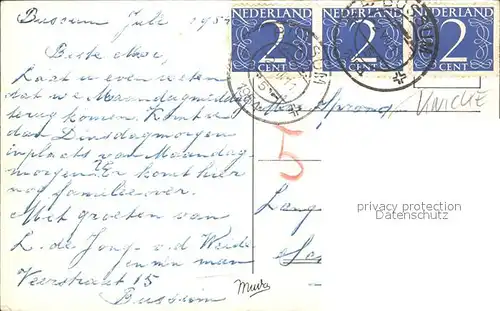 Bussum Juli 195
Beste Moe,
Laat u even weten
dat we Maandagmiddag
terug komen. Komt u
dan Dinsdagmorgen
inplaats van Maandag-
morgen. Er komt hier
nog familie over.
Met groeten van
L. de Jong - v. d. Weide
en mijn man
Veerstraat 15
Bussum
NEDERLAND NEDERLAND NEDERLAND
2 2 2
CENT CENT CENT
BUSSUM
Sprong
5
Lang
privacy protection
Datenschutz